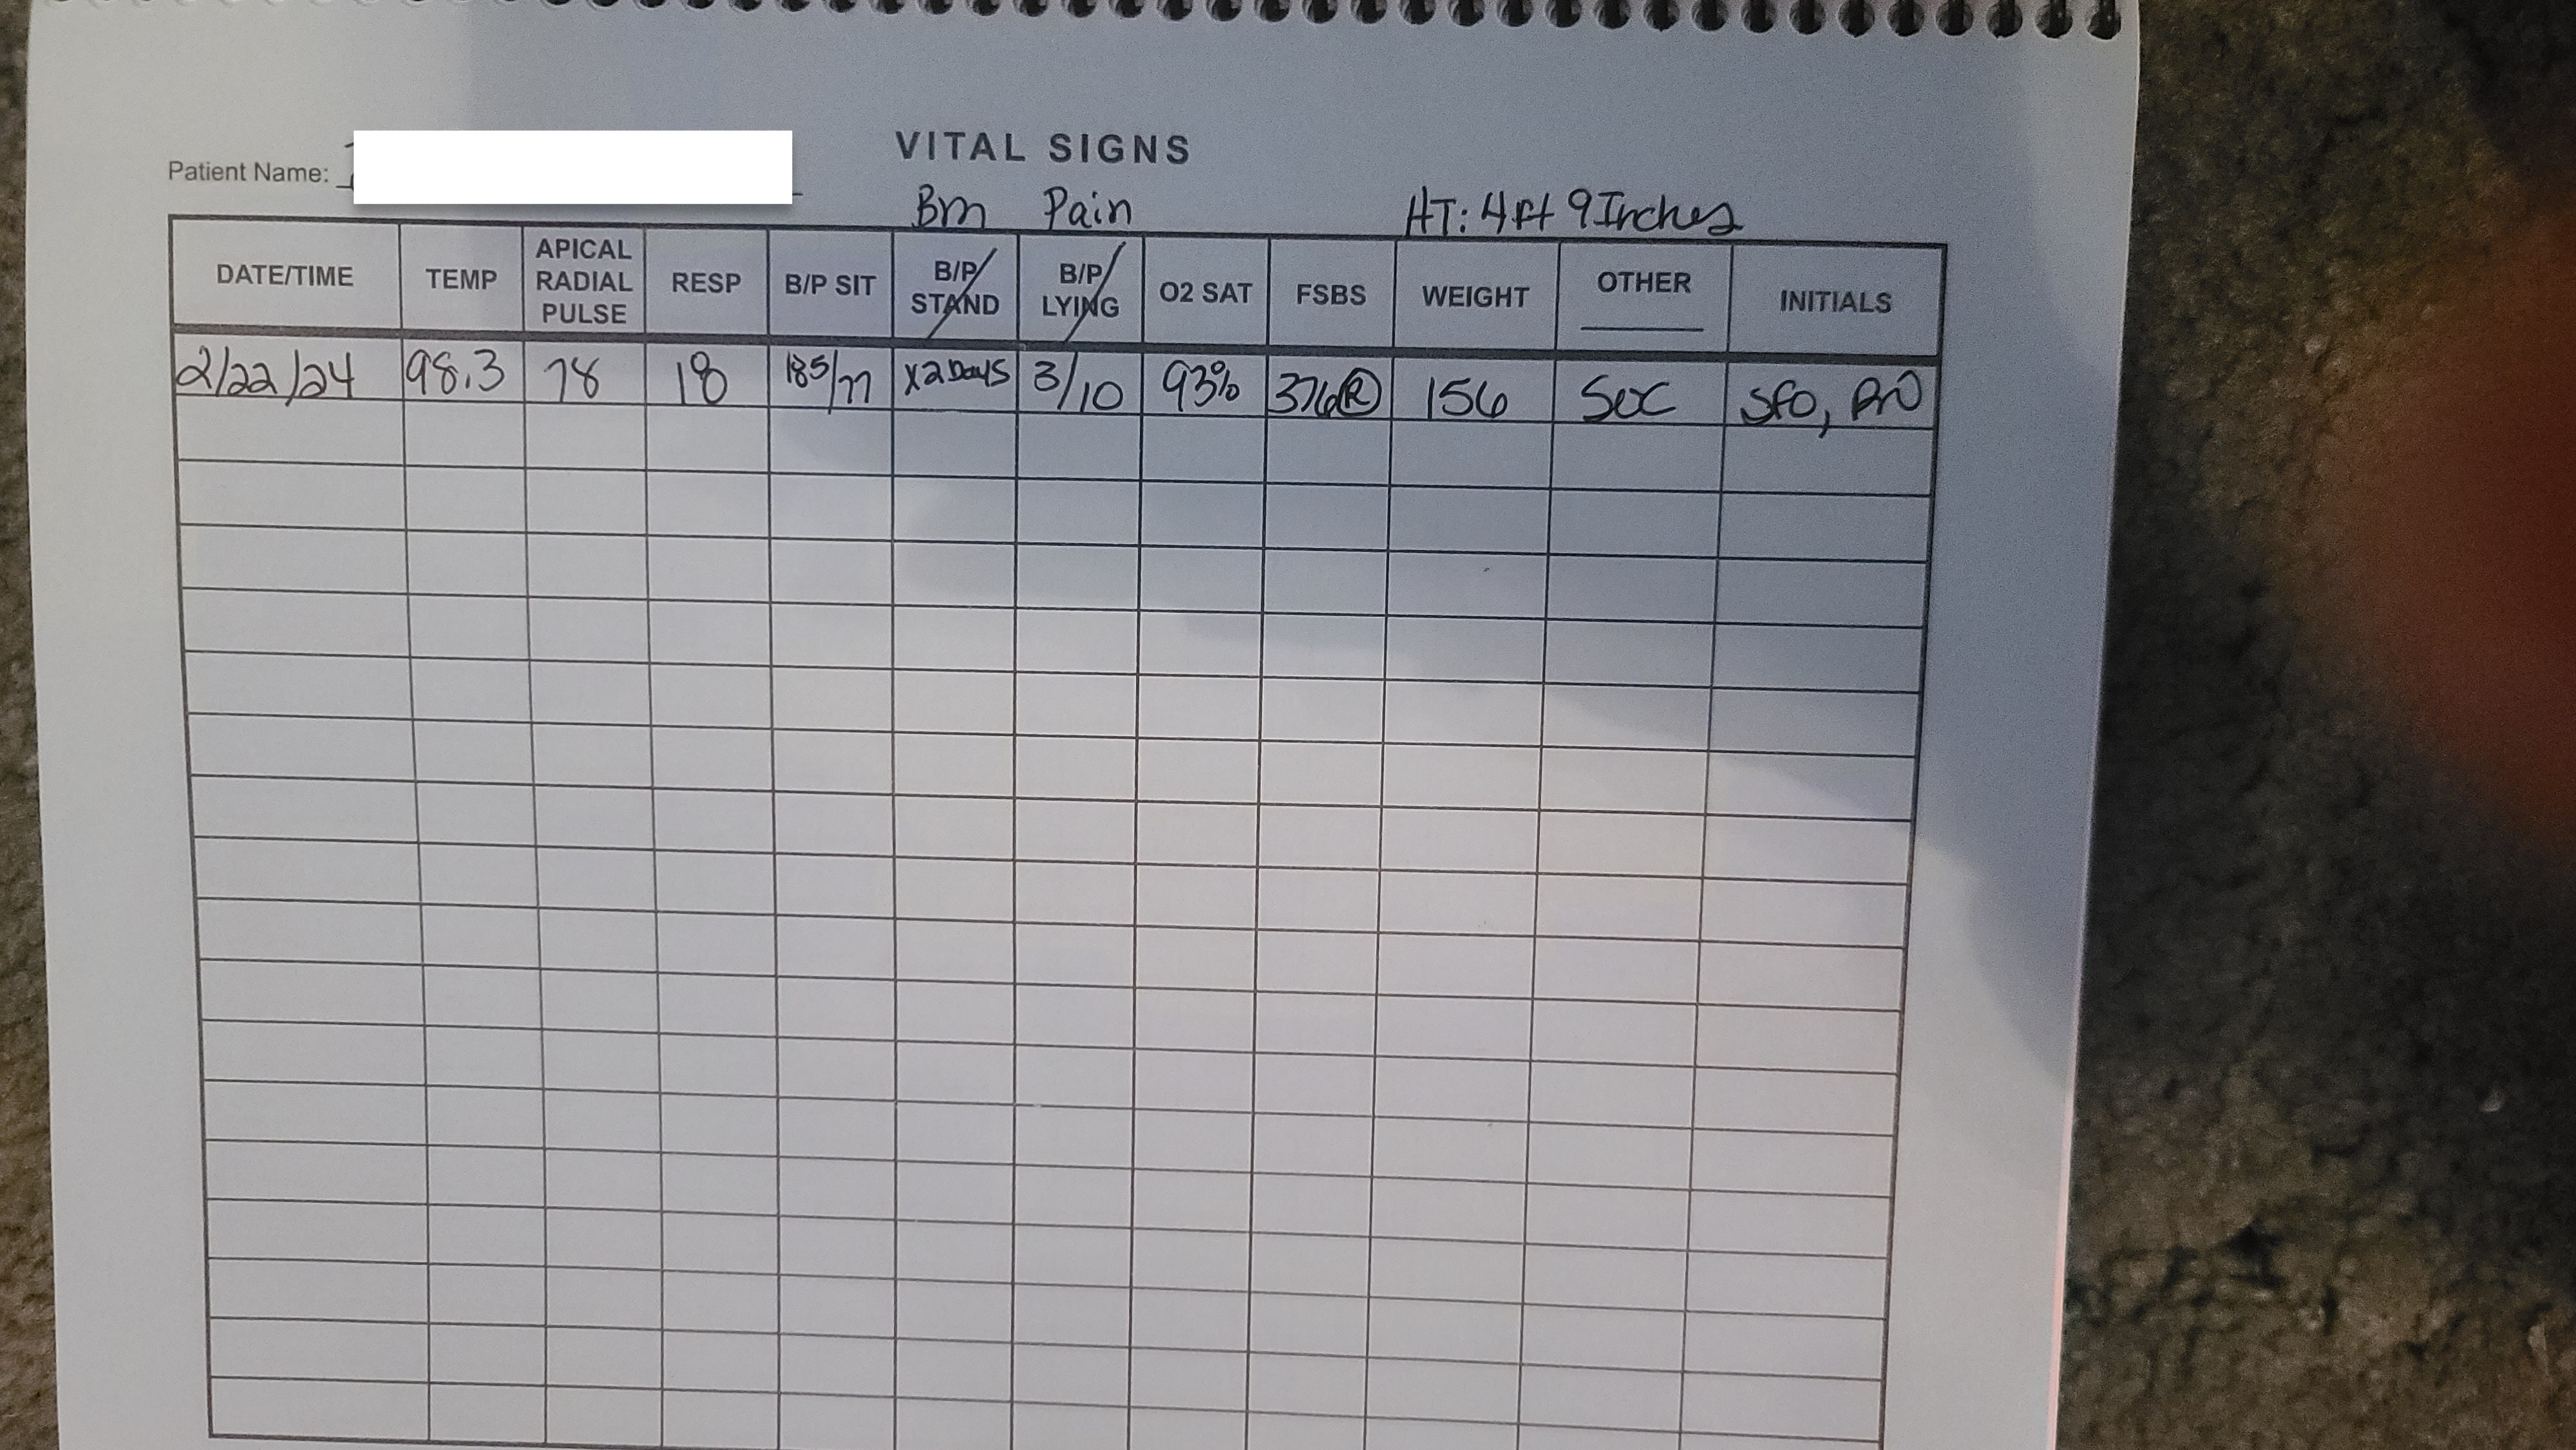 VITAL SIGNS
Patient Name:
Bm Pain HT: 4 Ft 9 Inches
DATE/TIME TEMP APICAL RADIAL PULSE RESP B/P SIT B/P STAND B/P LYING O2 SAT FSBS WEIGHT OTHER INITIALS
2/22/24 98.3 78 18 185/77 x2 Days 3/10 93% 376 R 156 SOC SFO, RN